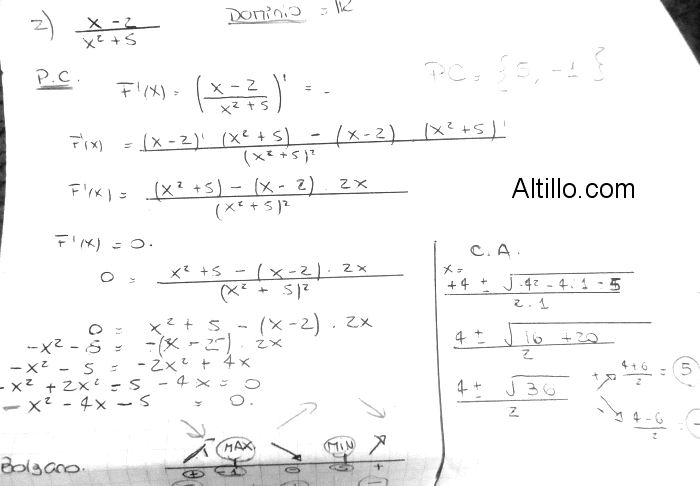 2) x-2 / x²+5   Dominio = IR
P.C.   F'(x) = (x-2 / x²+5)' =   PC = {5, -1}
F'(x) = (x-2)' (x²+5) - (x-2) (x²+5)' / (x²+5)²
F'(x) = (x²+5) - (x-2) . 2x / (x²+5)²
Altillo.com
F'(x) = 0.
0 = x²+5 - (x-2) . 2x / (x² + 5)²
0 = x² + 5 - (x-2) . 2x
-x² - 5 = -(x-2) . 2x
-x² - 5 = -2x² + 4x
-x² + 2x² - 5 - 4x = 0
x² - 4x - 5 = 0.
C.A.
x =
+4 ± √-4² - 4.1 - 5 / 2.1
4 ± √16 + 20 / 2
4 ± √36 / 2   + 4+6 / 2 = 5
- 4-6 / 2 = -
Bolzano.   MAX   MIN
+ -1 - +